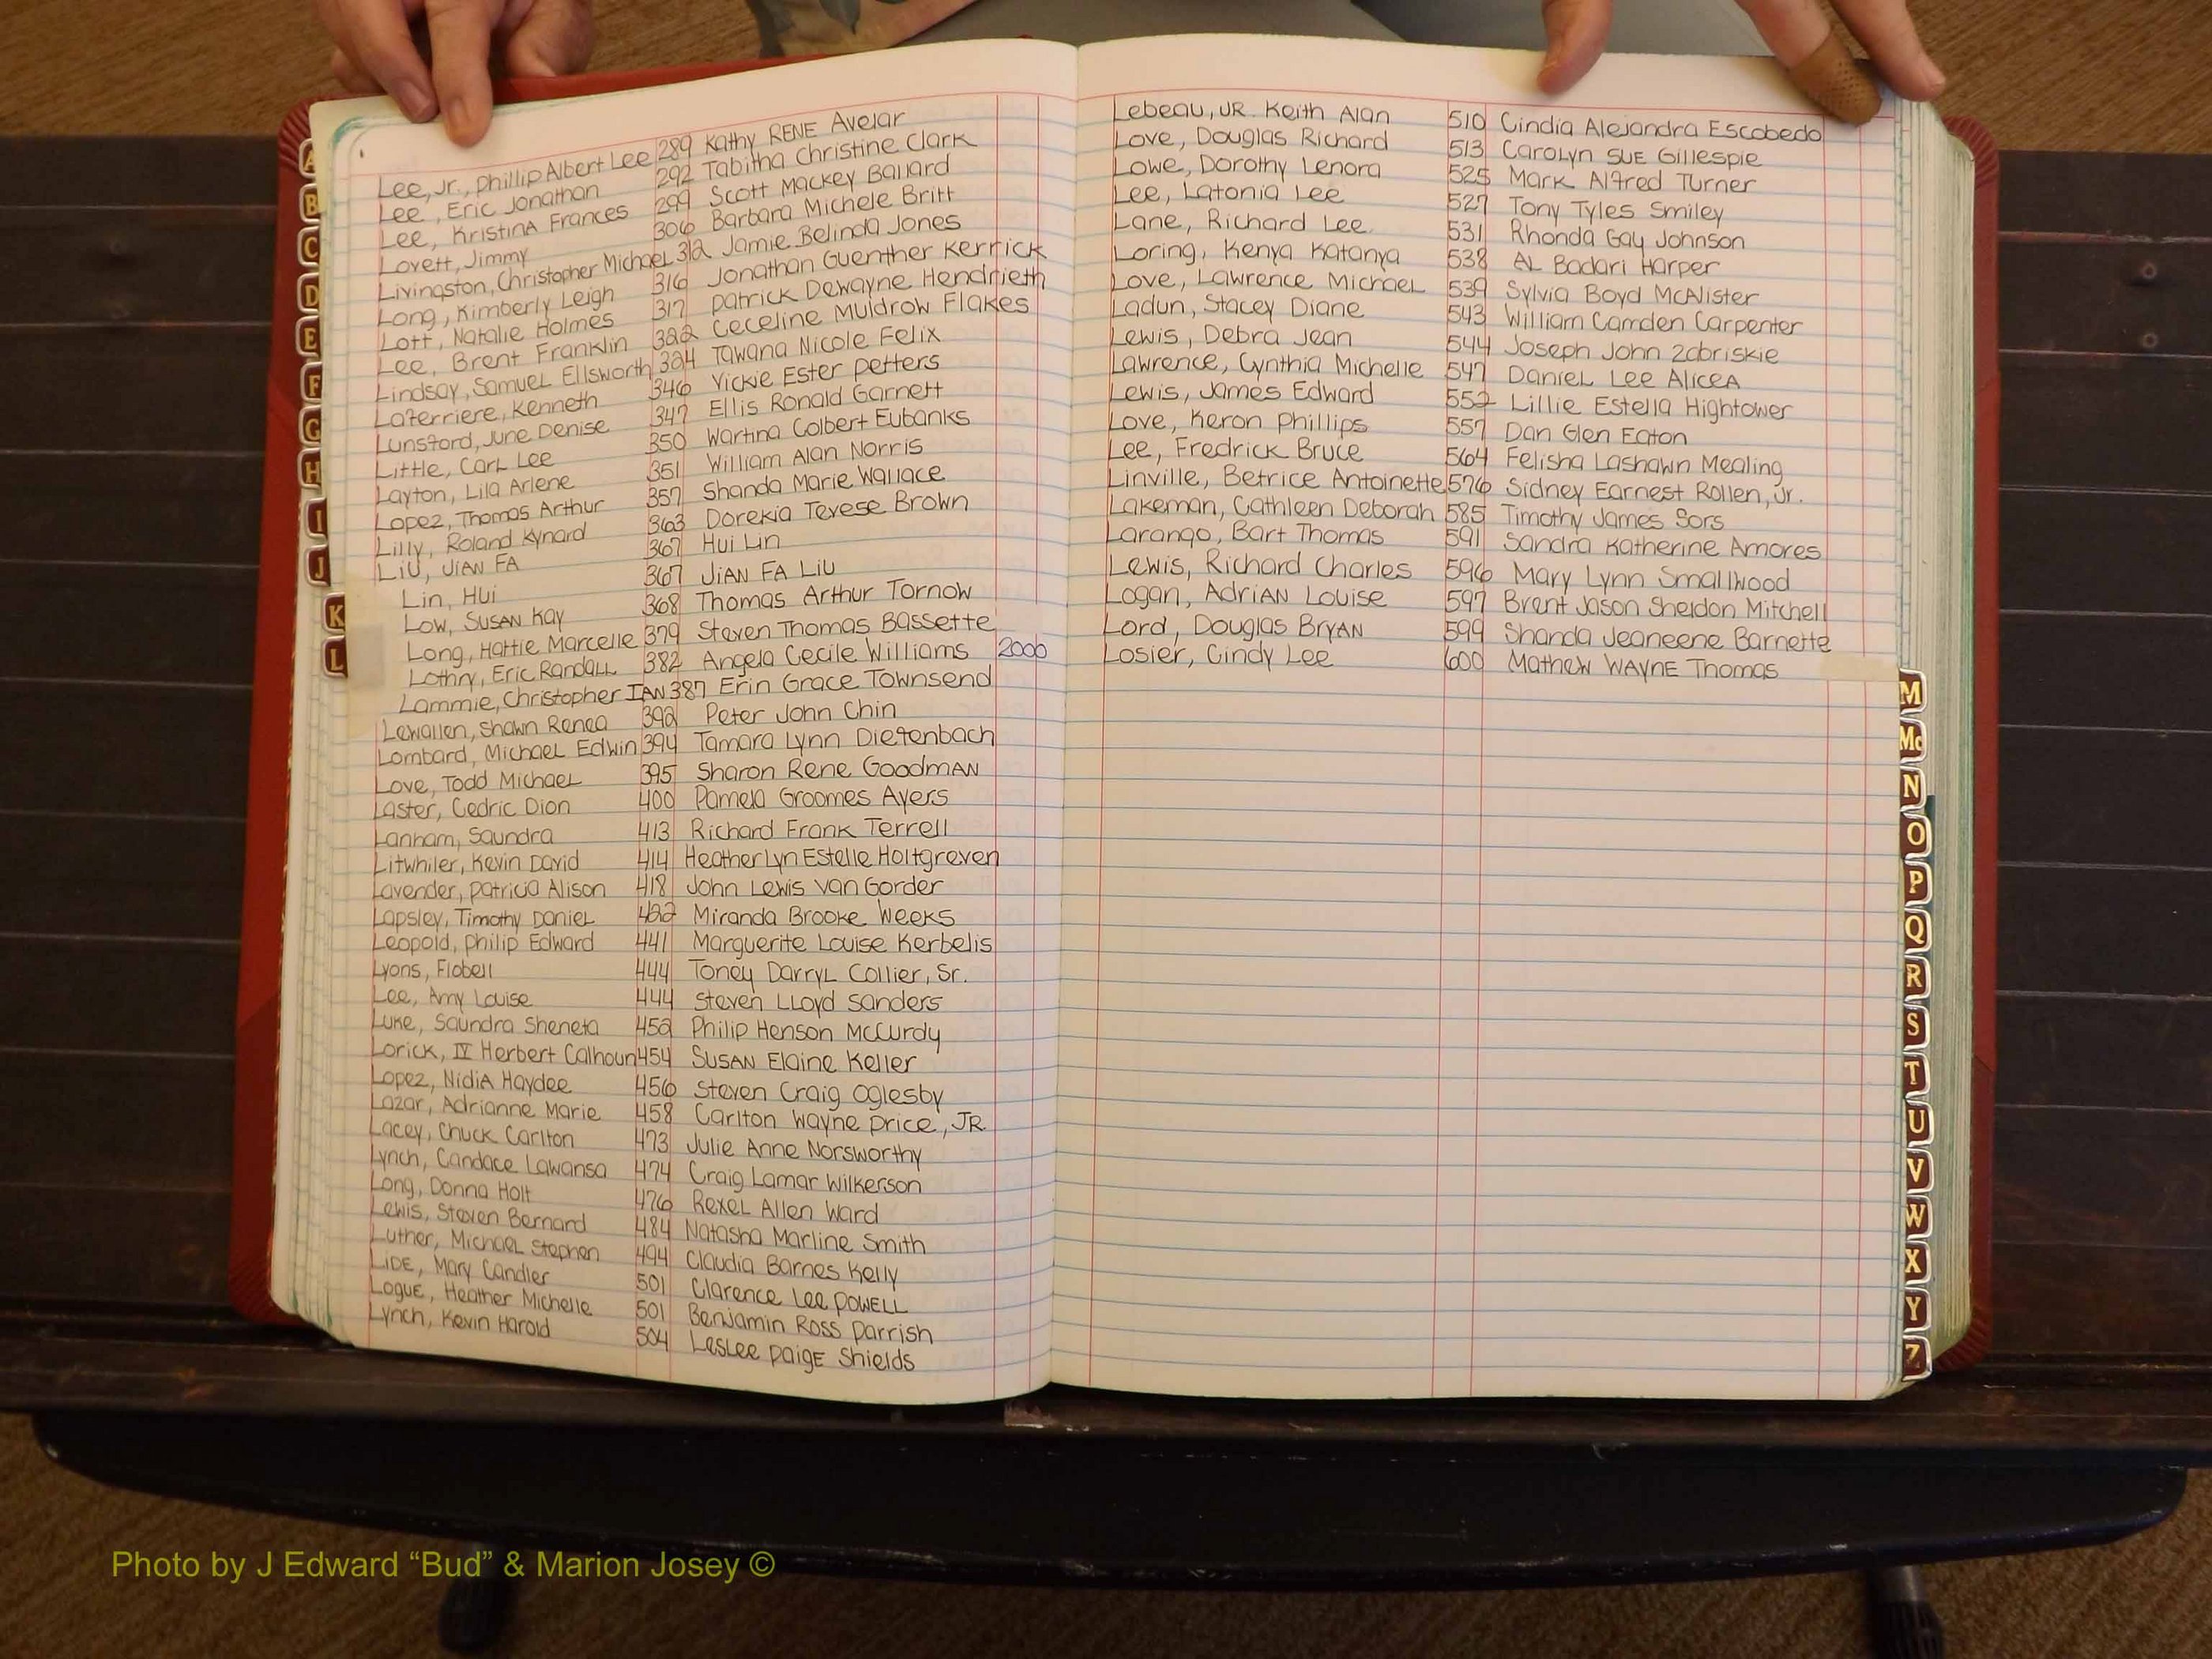 Lee, Jr., Phillip Albert Lee 289 Kathy RENE Avelar
Lee, Eric Jonathan 292 Tabitha Christine Clark
Lee, Kristina Frances 299 Scott Mackey Ballard
Lovett, Jimmy 306 Barbara Michele Britt
Livingston, Christopher Michael 312 Jamie Belinda Jones
Long, Kimberly Leigh 316 Jonathan Guenther Kerrick
Lott, Natalie Holmes 317 Patrick Dewayne Hendrieth
Lee, Brent Franklin 322 Ceceline Muldrow Flakes
Lindsay, Samuel Ellsworth 324 Tawana Nicole Felix
Laferriere, Kenneth 346 Vickie Ester Petters
Lunsford, June Denise 347 Ellis Ronald Garnett
Little, Carl Lee 350 Wartina Colbert Eubanks
Layton, Lila Arlene 351 William Alan Norris
Lopez, Thomas Arthur 357 Shanda Marie Wallace
Lilly, Roland Kynard 363 Dorekia Tevese Brown
LIU, JIAN FA 367 Hui Lin
Lin, Hui 367 JIAN FA LIU
Low, SUSAN Kay 368 Thomas Arthur Tornow
Long, Hattie Marcelle 379 Steven Thomas Bassette
Lothry, Eric Randall 382 Angela Cecile Williams 2000
Lammie, Christopher IAN 387 Erin Grace Townsend
Lewallen, Shawn Renea 392 Peter John Chin
Lombard, Michael Edwin 394 Tamara Lynn Diefenbach
Love, Todd Michael 395 Sharon Rene GoodmAN
Laster, Cedric Dion 400 Pamela Groomes Ayers
Lanham, Saundra 413 Richard Frank Terrell
Litwhiler, Kevin David 414 Heather Lyn Estelle Holtgreven
Lavender, Patricia Alison 418 John Lewis Van Gorder
Lapsley, Timothy Daniel 422 Miranda Brooke Weeks
Leopold, Philip Edward 441 Marguerite Louise Kerbelis
Lyons, Flobell 444 Toney Darryl Collier, Sr.
Lee, Amy Louise 444 Steven Lloyd Sanders
Luke, Saundra Sheneta 452 Philip Henson McCurdy
Lorick, IV Herbert Calhoun 454 SUSAN Elaine Keller
Lopez, Nidia Haydee 456 Steven Craig Oglesby
Lazar, Adrianne Marie 458 Carlton Wayne Price, JR
Lacey, Chuck Carlton 473 Julie Anne Norsworthy
Lynch, Candace Lawansa 474 Craig Lamar Wilkerson
Long, Donna Holt 476 Rexel Allen Ward
Lewis, Steven Bernard 484 Natasha Marline Smith
Luther, Michael Stephen 494 Claudia Barnes Kelly
LIDE, Mary Candler 501 Clarence Lee POWELL
LOGUE, Heather Michelle 501 Benjamin Ross Parrish
Lynch, Kevin Harold 504 Leslee PAIGE Shields
Lebeau, JR. Keith Alan 510 Cindia Alejandra Escobedo
Love, Douglas Richard 513 Carolyn SUE Gillespie
Lowe, Dorothy Lenora 525 Mark Alfred Turner
Lee, Latonia Lee 527 Tony Tyles Smiley
Lane, Richard Lee 531 Rhonda Gay Johnson
Loring, Kenya Katanya 538 AL Badari Harper
Love, Lawrence Michael 539 Sylvia Boyd McAlister
Ladun, Stacey Diane 543 William Camden Carpenter
Lewis, Debra Jean 544 Joseph John Zabriskie
Lawrence, Cynthia Michelle 547 Daniel Lee AliceA
Lewis, James Edward 552 Lillie Estella Hightower
Love, Keron Phillips 557 Dan Glen Eaton
Lee, Fredrick Bruce 564 Felisha Lashawn Mealing
Linville, Betrice Antoinette 576 Sidney Earnest Rollen, Jr.
Lakeman, Cathleen Deborah 585 Timothy James Sors
Larango, Bart Thomas 591 Sandra Katherine Amores
Lewis, Richard Charles 596 Mary Lynn Smallwood
Logan, AdriAN Louise 597 Brent Jason Sheldon Mitchell
Lord, Douglas BRYAN 599 Shanda Jeaneene Barnette
Losier, Cindy Lee 600 Mathew WAYNE Thomas
A
B
C
D
E
F
G
H
I
J
K
L
M
Mc
N
O
P
Q
R
S
T
U
V
W
X
Y
Z
Photo by J Edward “Bud” & Marion Josey ©